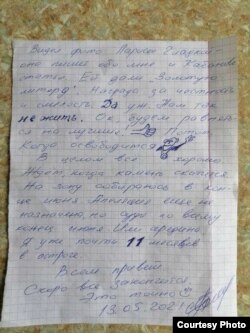 Видел фото Ларисы Гладкой -
она пишет обо мне и Кабанове
статьи. Ей дали „Золотую
литеру". Награда за честность
и смелость. Да уж. Нам так
не жить. Ок, будем равнять-
ся на лучших! Потом.
Когда освободится
В целом все хорошо.
Ждут, когда комиссия
На зону собираюсь в кон-
це июня. Апелляция еще не
назначена, но судя по всему
конец июня
Я уже почти 11 месяцев
в остроге.
Всем привет!
Скоро все закончится.
Это точно
13.05.2021
Courtesy Photo